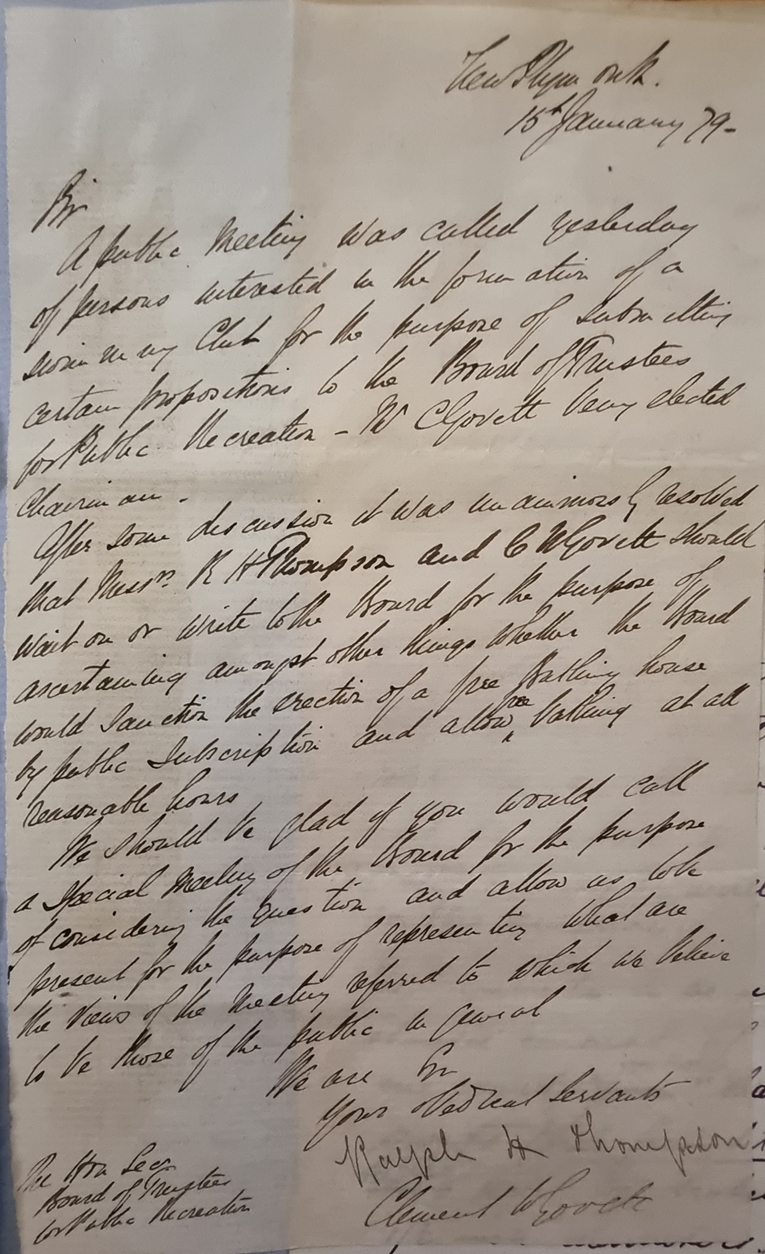 New Plymouth.
15th January 79-
Sir
A public Meeting was called yesterday
of persons interested in the formation of a
swimming Club for the purpose of submitting
certain propositions to the Board of Trustees
for Public Recreation - Mr C Govett being elected
Chairman.
After some discussion it was unanimously resolved
that Messrs R H Thompson and C W Govett should
wait on or write to the Board for the purpose of
ascertaining amongst other things whether the Board
would sanction the erection of a free Bathing house
by public subscription and allow free bathing at all
reasonable hours
We should be glad if you would call
a special Meeting of the Board for the purpose
of considering the question and allow us to be
present for the purpose of representing what are
the views of the Meeting referred to which we believe
to be those of the public in general
We are Sir
Your obedient Servants
Ralph H Thompson
Clement W Govett
The Hon Secy
Board of Trustees
for Public Recreation